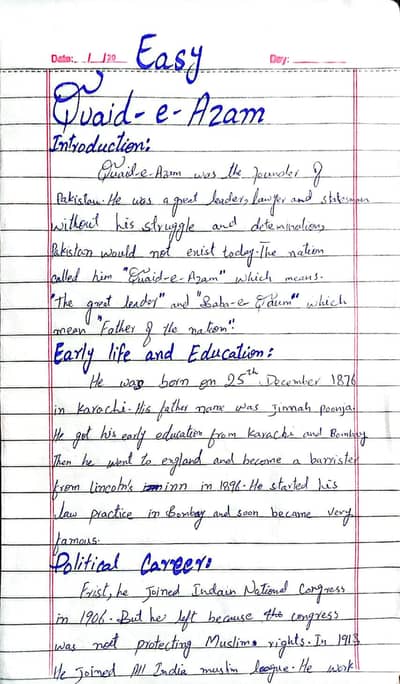 Date: / /20
Easy
Day:
Quaid-e-Azam
Introduction:
Quaid-e-Azam was the founder of
Pakistan. He was a great leader, lawyer and statesman
without his struggle and determination,
Pakistan would not exist today. The nation
called him "Quaid-e-Azam" which means.
"The great leader" and "Baba-e-Qaum" which
mean "Father of the nation".
Early life and Education:
He was born on 25th December 1876
in Karachi. His father name was Jinnah Poonja.
He got his early education from Karachi and Bombay
Then he went to england and become a barrister
from lincoln's inn in 1896. He started his
law practice in Bombay and soon became very
famous.
Political Career:
Frist, he joined Indain National Congress
in 1906. But he left because the congress
was not protecting Muslims rights. In 1913
He joined All India muslim league. He work